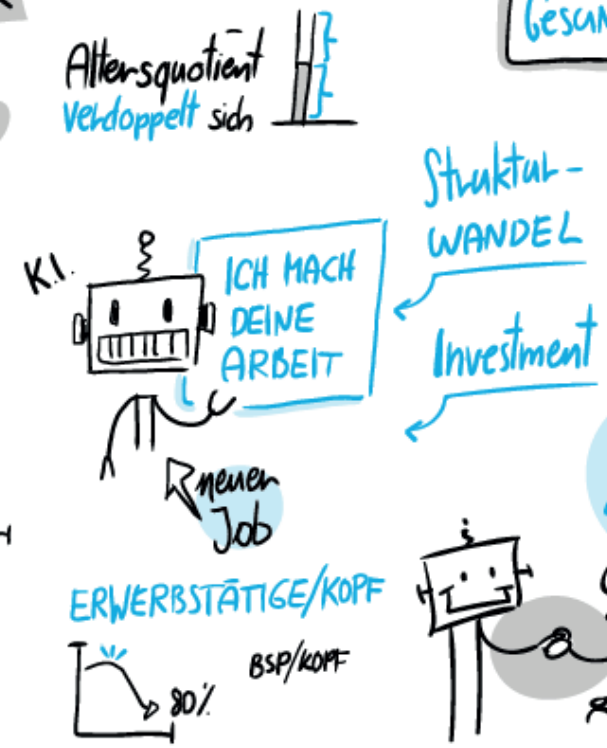 Altersquotient
verdoppelt sich
Struktur-
WANDEL
K.I.
ICH MACH
DEINE
ARBEIT
Investment
neuer
Job
ERWERBSTÄTIGE/KOPF
BSP/KOPF
80%